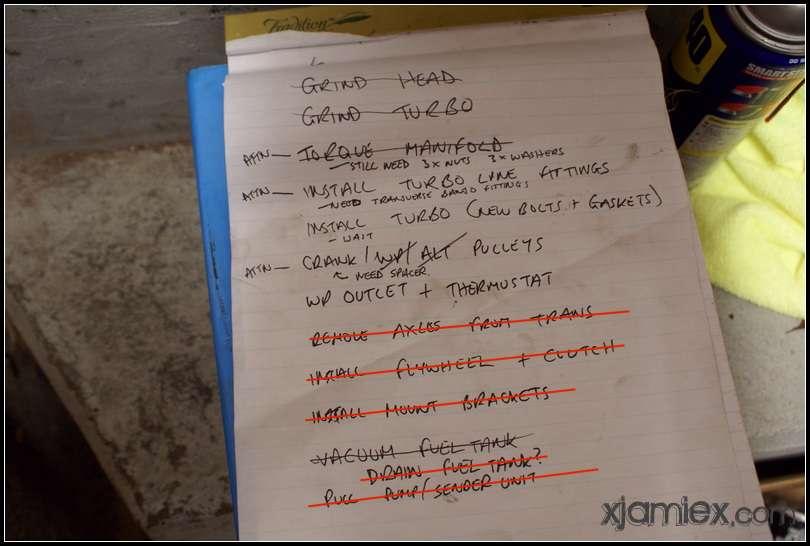 Tradition
GRIND HEAD
GRIND TURBO
ATTN — TORQUE MANIFOLD
– STILL NEED 3x NUTS 3x WASHERS
ATTN — INSTALL TURBO LINE FITTINGS
– NEED TRANSVERSE BANJO FITTINGS
INSTALL TURBO (NEW BOLTS + GASKETS)
– WAIT
ATTN — CRANK/WP/ALT PULLEYS
NEED SPACER
WP OUTLET + THERMOSTAT
REMOVE AXLES FROM TRANS
INSTALL FLYWHEEL + CLUTCH
INSTALL MOUNT BRACKETS
VACUUM FUEL TANK
DRAIN FUEL TANK?
PULL PUMP/SENDER UNIT
SMART
xjamiex.com